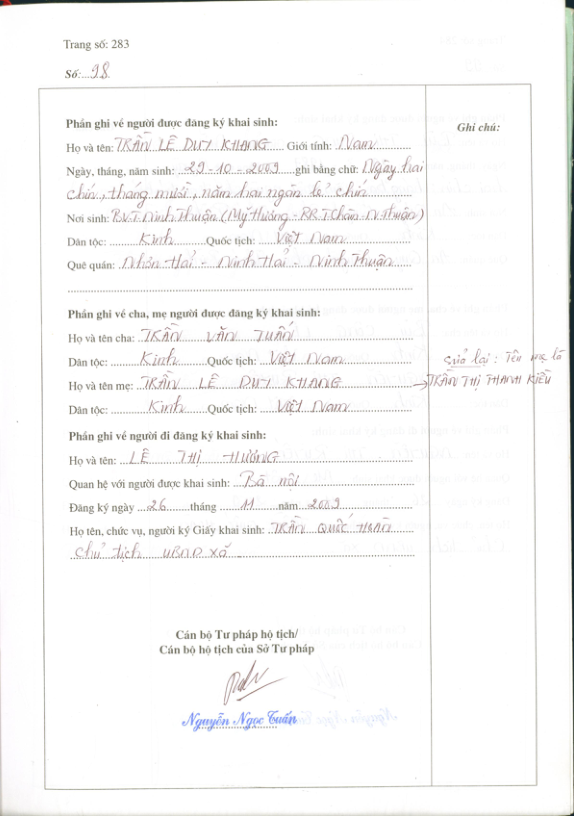 Trang số: 283
Số: 98
Phần ghi về người được đăng ký khai sinh:
Ghi chú:
Họ và tên: TRẦN LÊ DUY KHANG Giới tính: Nam
Ngày, tháng, năm sinh: 29-10-2009 ghi bằng chữ: Ngày hai
chín, tháng mười, năm hai ngàn lẻ chín
Nơi sinh: B.V.T. Ninh Thuận (Mỹ Hương - P.R.T.Chàm - N.Thuận)
Dân tộc: Kinh Quốc tịch: Việt Nam
Quê quán: Nhơn Hải - Ninh Hải - Ninh Thuận
Phần ghi về cha, mẹ người được đăng ký khai sinh:
Họ và tên cha: TRẦN VĂN TUẤN
Dân tộc: Kinh Quốc tịch: Việt Nam
Sửa lại: Tên mẹ là
Họ và tên mẹ: TRẦN LÊ DUY KHANG → TRẦN THỊ THANH KIỀU
Dân tộc: Kinh Quốc tịch: Việt Nam
Phần ghi về người đi đăng ký khai sinh:
Họ và tên: LÊ THỊ HƯƠNG
Quan hệ với người được khai sinh: Bà nội
Đăng ký ngày 26 tháng 11 năm 2009
Họ tên, chức vụ, người ký Giấy khai sinh: TRẦN QUỐC
Chủ tịch UBND xã
Cán bộ Tư pháp hộ tịch/
Cán bộ hộ tịch của Sở Tư pháp
Nguyễn Ngọc Tuấn